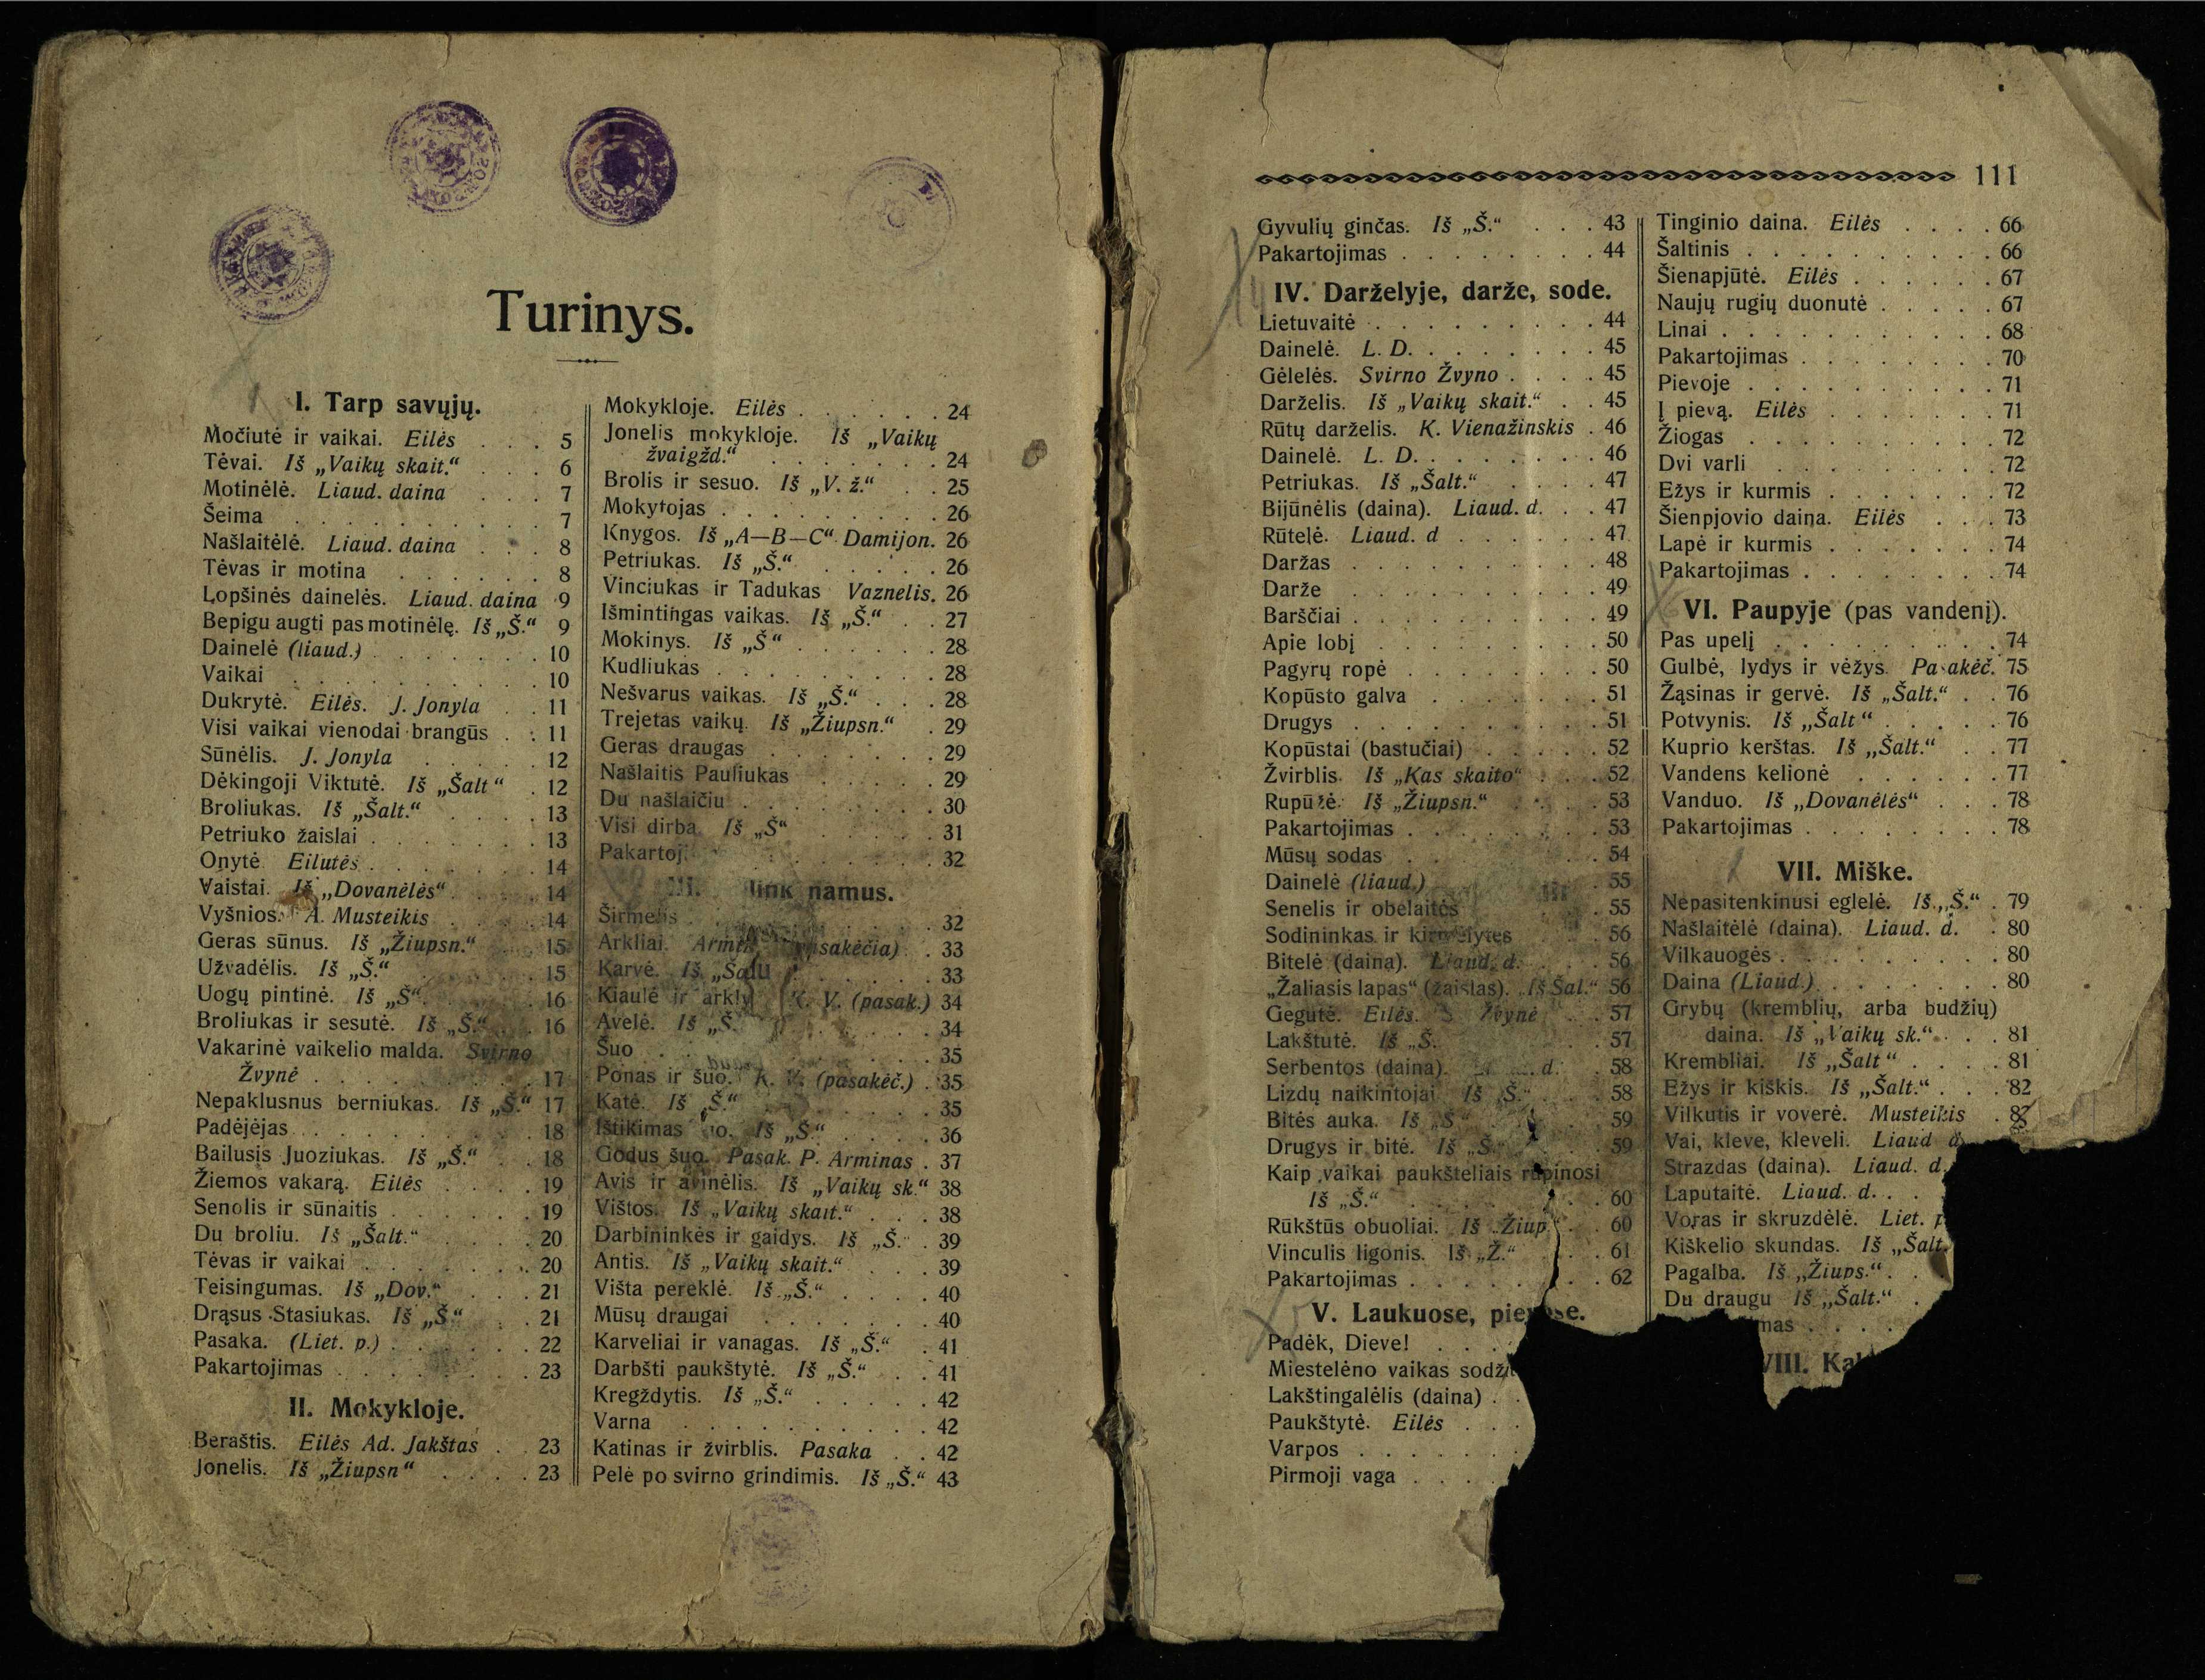 Turinys.
I. Tarp savųjų.
Močiutė ir vaikai. Eilės . . . 5
Tėvai. Iš „Vaikų skait.“ . . . 6
Motinėlė. Liaud. daina . . . 7
Šeima . . . . . . . . . . 7
Našlaitėlė. Liaud. daina . . . 8
Tėvas ir motina . . . . . . 8
Lopšinės dainelės. Liaud. daina 9
Bepigu augti pas motinėlę. Iš „Š.“ 9
Dainelė (liaud.) . . . . . . . 10
Vaikai . . . . . . . . . . 10
Dukrytė. Eilės. J. Jonyla . . 11
Visi vaikai vienodai brangūs . . 11
Sūnėlis. J. Jonyla . . . . . 12
Dėkingoji Viktutė. Iš „Šalt“ . 12
Broliukas. Iš „Šalt.“ . . . . 13
Petriuko žaislai . . . . . . . 13
Onytė. Eilutės . . . . . . . 14
Vaistai. Iš „Dovanėlės“ . . . 14
Vyšnios. A. Musteikis . . . . 14
Geras sūnus. Iš „Žiupsn.“ . . 15
Užvadėlis. Iš „Š.“ . . . . . 15
Uogų pintinė. Iš „Š“. . . . . 16
Broliukas ir sesutė. Iš „Š.“ . . 16
Vakarinė vaikelio malda. Svirno
Žvynė . . . . . . . . . 17
Nepaklusnus berniukas. Iš „Š.“ 17
Padėjėjas . . . . . . . . . 18
Bailusis Juoziukas. Iš „Š.“ . . 18
Žiemos vakarą. Eilės . . . . 19
Senolis ir sūnaitis . . . . . . 19
Du broliu. Iš „Šalt.“ . . . . 20
Tėvas ir vaikai . . . . . . . 20
Teisingumas. Iš „Dov.“ . . . 21
Drąsus Stasiukas. Iš „Š“ . . 21
Pasaka. (Liet. p.) . . . . . . 22
Pakartojimas . . . . . . . . 23
II. Mokykloje.
Beraštis. Eilės Ad. Jakštas . . 23
Jonelis. Iš „Žiupsn“ . . . . 23
Mokykloje. Eilės . . . . . . 24
Jonelis mokykloje. Iš „Vaikų
žvaigžd.“ . . . . . . . 24
Brolis ir sesuo. Iš „V. ž.“ . . 25
Mokytojas . . . . . . . . . 26
Knygos. Iš „A—B—C“ Damijon. 26
Petriukas. Iš „Š.“ . . . . . 26
Vinciukas ir Tadukas Vaznelis. 26
Išmintingas vaikas. Iš „Š.“ . . 27
Mokinys. Iš „Š“ . . . . . . 28
Kudliukas . . . . . . . . . 28
Nešvarus vaikas. Iš „Š.“ . . . 28
Trejetas vaikų. Iš „Žiupsn.“ . 29
Geras draugas . . . . . . . 29
Našlaitis Pauliukas . . . . . 29
Du našlaičiu . . . . . . . . 30
Visi dirba. Iš „Š“ . . . . . 31
Pakartoj. . . . . . . . . 32
namus.
Širmelis . . . . . . . . . . 32
Arkliai. 33
Karvė. Iš 33
Kiaulė ir K. V. (pasak.) 34
Avelė. Iš „Š. . . . . . . 34
Šuo . . . . . . . . . . . 35
Ponas ir šuo. K. V. (pasakėč.) . 35
Katė. Iš „Š.“ . . . . . . . 35
Ištikimas Iš „Š.“ . . . . 36
Godus šuo. Pasak. P. Arminas . 37
Avis ir avinėlis. Iš „Vaikų sk.“ 38
Vištos. Iš „Vaikų skait.“ . . . 38
Darbininkės ir gaidys. Iš „Š. . 39
Antis. Iš „Vaikų skait.“ . . . 39
Višta pereklė. Iš „Š.“ . . . . 40
Mūsų draugai . . . . . . . 40
Karveliai ir vanagas. Iš „Š.“ . 41
Darbšti paukštytė. Iš „Š.“ . . 41
Kregždytis. Iš „Š.“ . . . . . 42
Varna . . . . . . . . . . 42
Katinas ir žvirblis. Pasaka . . 42
Pelė po svirno grindimis. Iš „Š.“ 43
111
Gyvulių ginčas. Iš „Š.“ . . . 43
Pakartojimas . . . . . . . . 44
IV. Darželyje, darže, sode.
Lietuvaitė . . . . . . . . . 44
Dainelė. L. D. . . . . . . . 45
Gėlelės. Svirno Žvyno . . . . 45
Darželis. Iš „Vaikų skait.“ . . 45
Rūtų darželis. K. Vienažinskis . 46
Dainelė. L. D. . . . . . . . 46
Petriukas. Iš „Šalt.“ . . . . 47
Bijūnėlis (daina). Liaud. d. . . 47
Rūtelė. Liaud. d . . . . . . 47
Daržas . . . . . . . . . . 48
Darže . . . . . . . . . . 49
Barščiai . . . . . . . . . . 49
Apie lobį . . . . . . . . . 50
Pagyrų ropė . . . . . . . . 50
Kopūsto galva . . . . . . . 51
Drugys . . . . . . . . . . 51
Kopūstai (bastučiai) . . . . . 52
Žvirblis. Iš „Kas skaito“ . . . 52
Rupūžė. Iš „Žiupsn.“ . . . . 53
Pakartojimas . . . . . . . . 53
Mūsų sodas . . . . . . . . 54
Dainelė (liaud.) . . . . . . . 55
Senelis ir obelaitės . . . . . 55
Sodininkas ir kirmėlytės . . . 56
Bitelė (daina). Liaud. d. . . . 56
„Žaliasis lapas“ (žaislas). Iš Šal.“ 56
Gegutė. Eilės. S Žvynė . . 57
Lakštutė. Iš „Š. . . . . . 57
Serbentos (daina). d. . . 58
Lizdų naikintojai Iš „Š.“ . . 58
Bitės auka. Iš „Š“ . . . . . 59
Drugys ir bitė. Iš „Š.“ . . . 59
Kaip vaikai paukšteliais rūpinosi
Iš „Š.“ . . . . . . . . 60
Rūkštūs obuoliai. Iš „Žiup.“ . . 60
Vinculis ligonis. Iš „Ž.“ . . . 61
Pakartojimas . . . . . . . . 62
V. Laukuose, pievose.
Padėk, Dieve! . . . .
Miestelėno vaikas
Lakštingalėlis (daina) . .
Paukštytė. Eilės . . .
Varpos . . . . . . .
Pirmoji vaga . . . .
Tinginio daina. Eilės . . . . 66
Šaltinis . . . . . . . . . . 66
Šienapjūtė. Eilės . . . . . . 67
Naujų rugių duonutė . . . . . 67
Linai . . . . . . . . . . . 68
Pakartojimas . . . . . . . . 70
Pievoje . . . . . . . . . . 71
Į pievą. Eilės . . . . . . . 71
Žiogas . . . . . . . . . . 72
Dvi varli . . . . . . . . . 72
Ežys ir kurmis . . . . . . . 72
Šienpjovio daina. Eilės . . . 73
Lapė ir kurmis . . . . . . . 74
Pakartojimas . . . . . . . . 74
VI. Paupyje (pas vandenį).
Pas upelį . . . . . . . . . 74
Gulbė, lydys ir vėžys. Pasakėč. 75
Žąsinas ir gervė. Iš „Šalt.“ . . 76
Potvynis. Iš „Šalt“ . . . . . 76
Kuprio kerštas. Iš „Šalt.“ . . 77
Vandens kelionė . . . . . . 77
Vanduo. Iš „Dovanėlės“ . . . 78
Pakartojimas . . . . . . . . 78
VII. Miške.
Nepasitenkinusi eglelė. Iš „Š.“ . 79
Našlaitėlė (daina). Liaud. d. . 80
Vilkauogės . . . . . . . . . 80
Daina (Liaud.) . . . . . . . 80
Grybų (kremblių, arba budžių)
daina. Iš „Vaikų sk.“ . . . 81
Krembliai. Iš „Šalt“ . . . . 81
Ežys ir kiškis. Iš „Šalt.“ . . . 82
Vilkutis ir voverė. Musteikis .
Vai, kleve, kleveli. Liaud d.
Strazdas (daina). Liaud. d.
Laputaitė. Liaud. d. . .
Voras ir skruzdėlė. Liet. p
Kiškelio skundas. Iš „Šalt.
Pagalba. Iš „Žiups.“ . .
Du draugu Iš „Šalt.“ .
VIII.